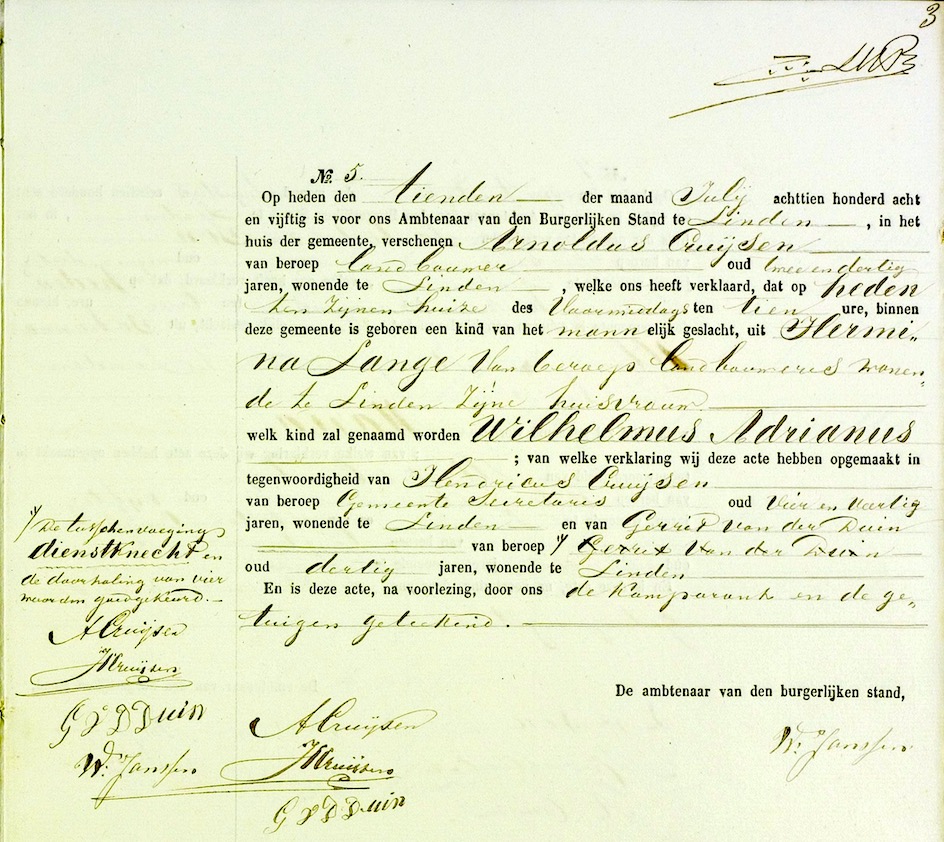 3
No. 5.
Op heden den tienden der maand Julij achttien honderd acht
en vijftig is voor ons Ambtenaar van den Burgerlijken Stand te Linden, in het
huis der gemeente, verschenen Arnoldus Cruijsen
van beroep landbouwer oud twee en dertig
jaren, wonende te Linden, welke ons heeft verklaard, dat op heden
ten zijnen huize des Voormiddags ten tien ure, binnen
deze gemeente is geboren een kind van het mannelijk geslacht, uit Hermi„
na Lange van beroep landbouweres wonen„
de te Linden zijne huisvrouw
welk kind zal genaamd worden Wilhelmus Adrianus
; van welke verklaring wij deze acte hebben opgemaakt in
tegenwoordigheid van Hendricus Cruijsen
van beroep Gemeente Secretaris oud vier en veertig
jaren, wonende te Linden en van Gerrit van der Duin
van beroep Gerrit van der Duin
oud dertig jaren, wonende te Linden
En is deze acte, na voorlezing, door ons de Komparant en de ge„
tuigen geteekend.
De tusschenvoeging
dienstknecht en
de doorhaling van vier
woorden goedgekeurd.
A Cruijsen
H Cruijsen
G V D Duin
W. Janssen
De ambtenaar van den burgerlijken stand,
W. Janssen
A Cruijsen
H Cruijsen
G V D Duin